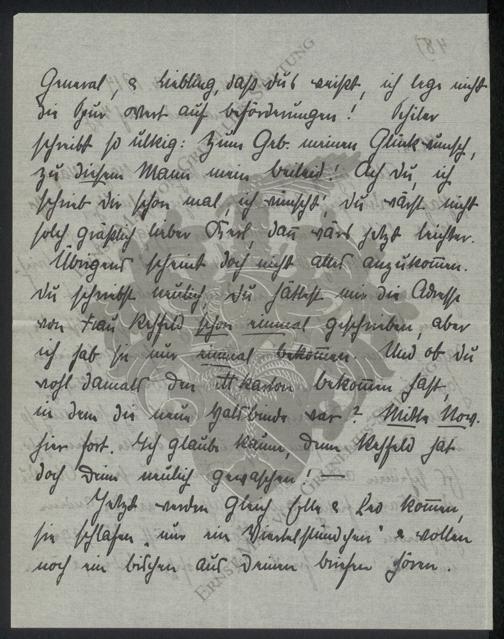 48)
General, & Liebling, daß du's weißt, ich lege nicht
die Spur Wert auf Beförderungen! Schiler
schreibt so ulkig: Zum Geb. meinen Glückwunsch,
zu diesem Mann mein Beileid! Ach du, ich
schrieb dir schon mal, ich wünscht', du wärst nicht
solch gräßlich lieber Kerl, dann wärs jetzt leichter.
Übrigens scheint doch nicht alles anzukommen.
Du schreibst neulich, du hättest mir die Adresse
von Frau Rehfeld schon einmal geschrieben, aber
ich hab sie nur einmal bekommen. Und ob du
wohl damals den Karton bekommen hast,
in dem die neue Halsbinde war? Mitte Nov.
hier fort. Ich glaube kaum, denn Rehfeld hat
doch Deine neulich gewaschen! —
Jetzt werden gleich & Leo kommen,
sie schlafen „nur ein Viertelstündchen" & wollen
noch ein bischen aus Deinen Briefen hören.
ERNST VON STIFTUNG